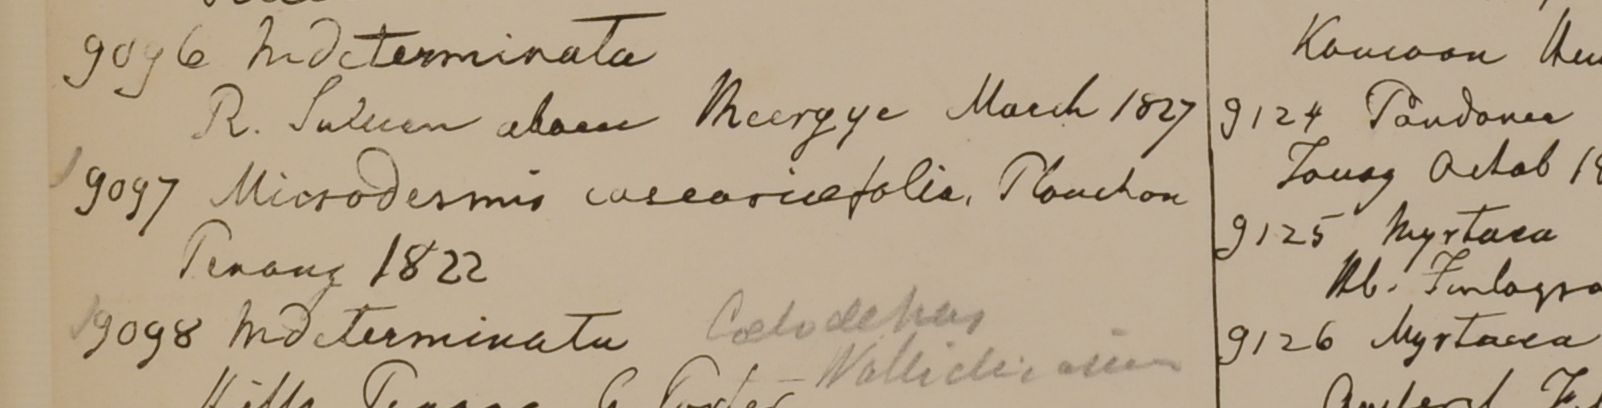 9096 Indeterminata
R. Saluen above Meergye March 1827
9097 Microdesmis caseariaefolia, Planchon
Penang 1822
9098 Indeterminata Coelodepas
Wallichianum
Hills Penang G Porter
9124 Pandanea
Tavoy Octob
9125 Myrtacea
Hb. Finlayso
9126 Myrtacea
Amherst